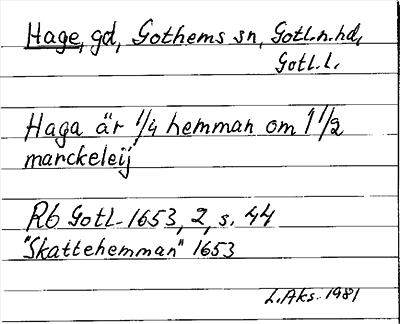 Hage, gd, Gothems sn, Gotl.n.hd,
Gotl.l.
Haga är 1/4 hemman om 1 1/2
marckeleij
Rb Gotl. 1653, 2, s. 44
"Skattehemman" 1653
L.Aks. 1981